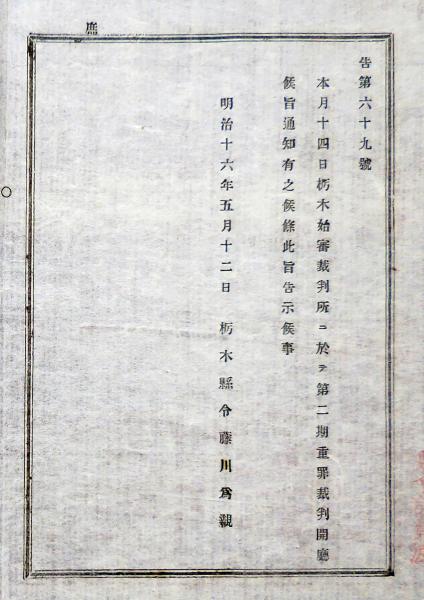 告第六十九號
本月十四日栃木始審裁判所ニ於テ第二期重罪裁判開廳
候旨通知有之候條此旨告示候事
明治十六年五月十二日 栃木縣令藤川爲親